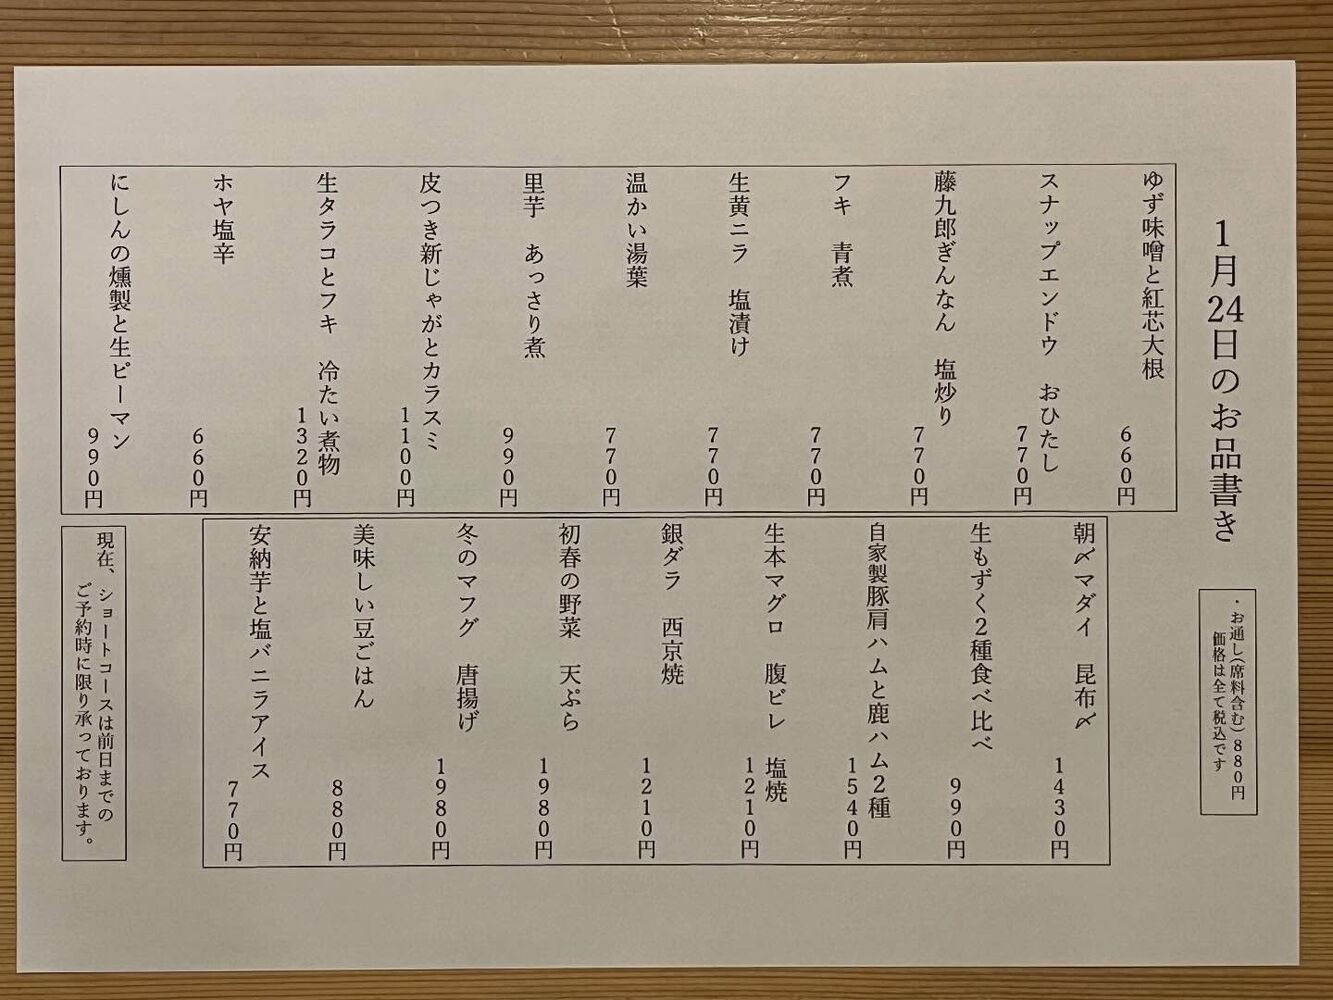 1月24日のお品書き
・お通し(席料含む)880円
価格は全て税込です
ゆず味噌と紅芯大根
660円
スナップエンドウ　おひたし
770円
藤九郎ぎんなん　塩炒り
770円
フキ　青煮
770円
生黄ニラ　塩漬け
770円
温かい湯葉
770円
里芋　あっさり煮
990円
皮つき新じゃがとカラスミ
1100円
生タラコとフキ　冷たい煮物
1320円
ホヤ塩辛
660円
にしんの燻製と生ピーマン
990円
朝〆マダイ　昆布〆
1430円
生もずく2種食べ比べ
990円
自家製豚肩ハムと鹿ハム2種
1540円
生本マグロ　腹ビレ　塩焼
1210円
銀ダラ　西京焼
1210円
初春の野菜　天ぷら
1980円
冬のマフグ　唐揚げ
1980円
美味しい豆ごはん
880円
安納芋と塩バニラアイス
770円
現在、ショートコースは前日までの
ご予約時に限り承っております。